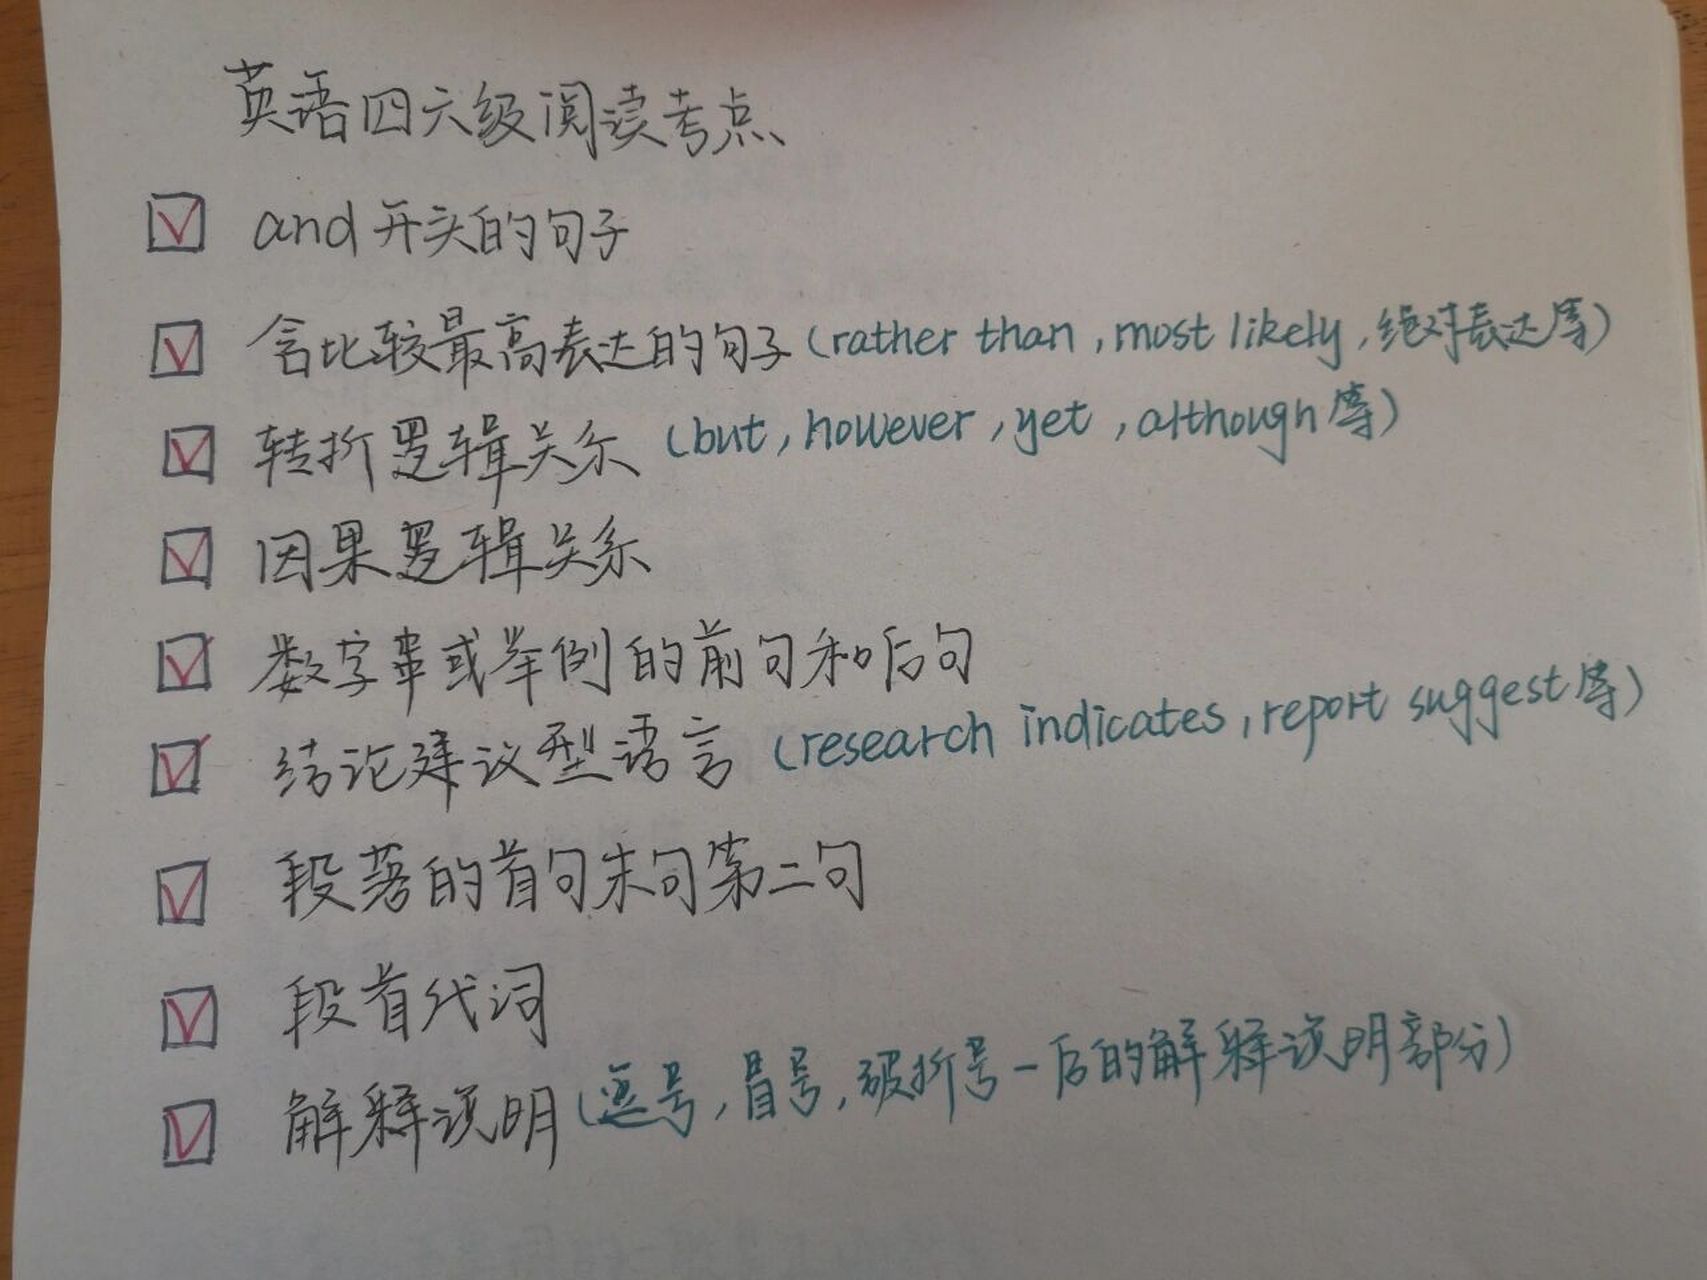 英语四六级阅读考点
and开头的句子
含比较最高表达的句子(rather than,most likely,绝对表达等)
转折逻辑关系(but,however,yet,although等)
因果逻辑关系
数字串或举例的前句和后句
结论建议型语言(research indicates,report suggest等)
段落的首句末句第二句
段首代词
解释说明(逗号,冒号,破折号-后的解释说明部分)